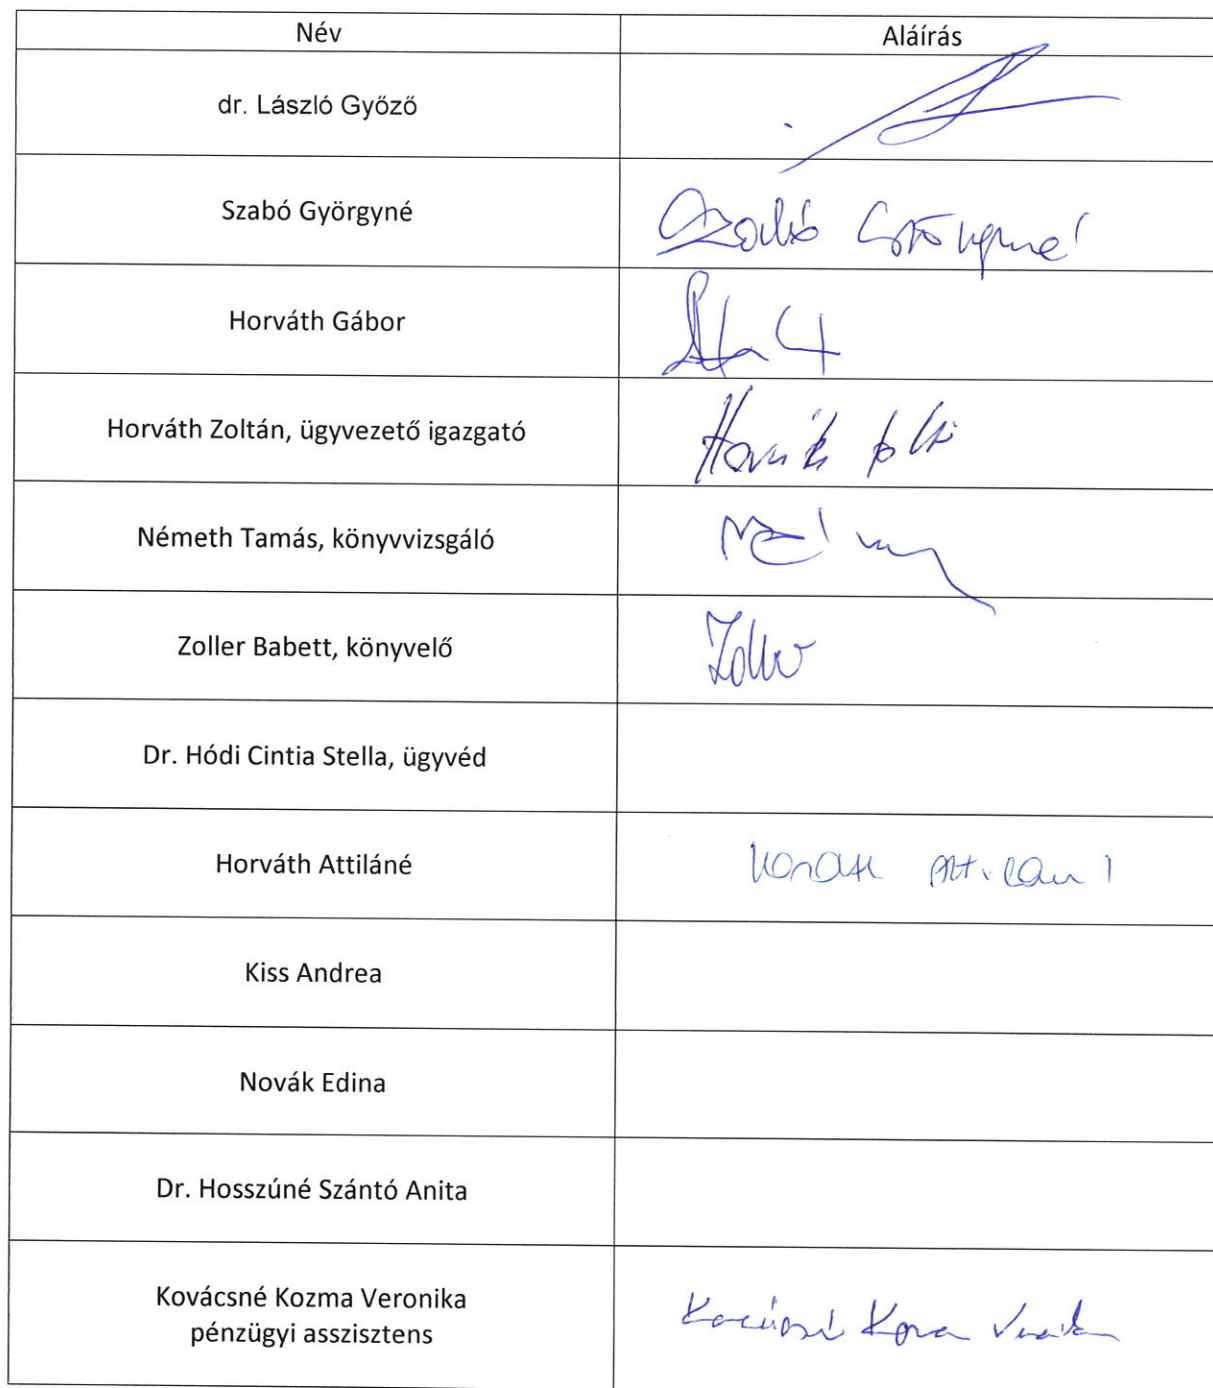 Név Aláírás
dr. László Győző
Szabó Györgyné Szabó Györgyné
Horváth Gábor
Horváth Zoltán, ügyvezető igazgató
Németh Tamás, könyvvizsgáló
Zoller Babett, könyvelő Zoller
Dr. Hódi Cintia Stella, ügyvéd
Horváth Attiláné Horváth Attiláné
Kiss Andrea
Novák Edina
Dr. Hosszúné Szántó Anita
Kovácsné Kozma Veronika
pénzügyi asszisztens